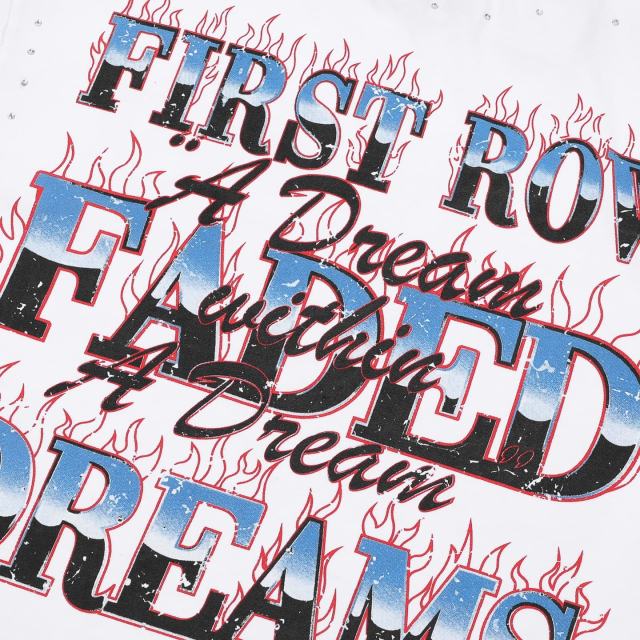 FIRST ROW
"A Dream
FADED
within
A Dream"
DREAMS